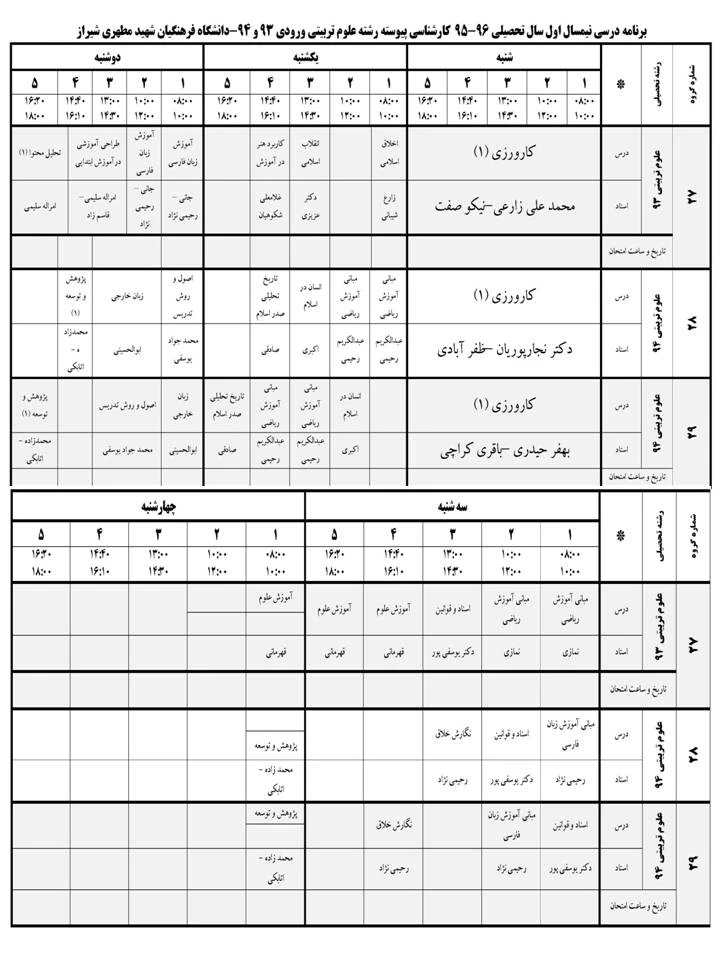 برنامه درسی نیمسال اول سال تحصیلی ۹۶-۹۵ کارشناسی پیوسته رشته علوم تربیتی ورودی ۹۳ و ۹۴-دانشگاه فرهنگیان شهید مطهری شیراز
شماره گروه رشته تحصیلی * شنبه یکشنبه دوشنبه
۱ ۲ ۳ ۴ ۵ ۱ ۲ ۳ ۴ ۵ ۱ ۲ ۳ ۴ ۵
۰۸:۰۰ ۱۰:۰۰ ۱۳:۰۰ ۱۴:۴۰ ۱۶:۲۰ ۰۸:۰۰ ۱۰:۰۰ ۱۳:۰۰ ۱۴:۴۰ ۱۶:۲۰ ۰۸:۰۰ ۱۰:۰۰ ۱۳:۰۰ ۱۴:۴۰ ۱۶:۲۰
۱۰:۰۰ ۱۲:۰۰ ۱۴:۳۰ ۱۶:۱۰ ۱۸:۰۰ ۱۰:۰۰ ۱۲:۰۰ ۱۴:۳۰ ۱۶:۱۰ ۱۸:۰۰ ۱۰:۰۰ ۱۲:۰۰ ۱۴:۳۰ ۱۶:۱۰ ۱۸:۰۰
۲۷ علوم تربیتی ۹۳
درس کارورزی (۱) اخلاق اسلامی انقلاب اسلامی کاربرد هنر در آموزش آموزش زبان فارسی آموزش زبان فارسی طراحی آموزشی در آموزش ابتدایی تحلیل محتوا (۱)
استاد محمد علی زارعی -نیکو صفت زارع شیبانی دکتر عزیزی غلامعلی شکوهیان جانی - رحیمی نژاد جانی - رحیمی نژاد امراله سلیمی- قاسم زاد امراله سلیمی
تاریخ و ساعت امتحان
۲۸ علوم تربیتی ۹۴
درس کارورزی (۱) مبانی آموزش ریاضی مبانی آموزش ریاضی انسان در اسلام تاریخ تحلیلی صدر اسلام اصول و روش تدریس زبان خارجی پژوهش و توسعه (۱)
استاد دکتر نجارپوریان -ظفر آبادی عبدالکریم رحیمی عبدالکریم رحیمی اکبری صادقی محمد جواد یوسفی ابوالحسینی محمدزاد ه - اتابکی
۲۹ علوم تربیتی ۹۴
درس کارورزی (۱) انسان در اسلام مبانی آموزش ریاضی مبانی آموزش ریاضی تاریخ تحلیلی صدر اسلام زبان خارجی اصول و روش تدریس پژوهش و توسعه (۱)
استاد بهفر حیدری -باقری کراچی اکبری عبدالکریم رحیمی عبدالکریم رحیمی صادقی ابوالحسینی محمد جواد یوسفی محمدزاده - اتابکی
تاریخ و ساعت امتحان
شماره گروه رشته تحصیلی * سه شنبه چهارشنبه
۱ ۲ ۳ ۴ ۵ ۱ ۲ ۳ ۴ ۵
۰۸:۰۰ ۱۰:۰۰ ۱۳:۰۰ ۱۴:۴۰ ۱۶:۲۰ ۰۸:۰۰ ۱۰:۰۰ ۱۳:۰۰ ۱۴:۴۰ ۱۶:۲۰
۱۰:۰۰ ۱۲:۰۰ ۱۴:۳۰ ۱۶:۱۰ ۱۸:۰۰ ۱۰:۰۰ ۱۲:۰۰ ۱۴:۳۰ ۱۶:۱۰ ۱۸:۰۰
۲۷ علوم تربیتی ۹۳
درس مبانی آموزش ریاضی مبانی آموزش ریاضی اسناد و قوانین آموزش علوم آموزش علوم آموزش علوم
استاد نمازی نمازی دکتر یوسفی پور قهرمانی قهرمانی قهرمانی
تاریخ و ساعت امتحان
۲۸ علوم تربیتی ۹۴
درس مبانی آموزش زبان فارسی اسناد و قوانین نگارش خلاق پژوهش و توسعه
استاد رحیمی نژاد دکتر یوسفی پور رحیمی نژاد محمد زاده - اتابکی
۲۹ علوم تربیتی ۹۴
درس اسناد و قوانین مبانی آموزش زبان فارسی نگارش خلاق پژوهش و توسعه
استاد دکتر یوسفی پور رحیمی نژاد رحیمی نژاد محمد زاده - اتابکی
تاریخ و ساعت امتحان